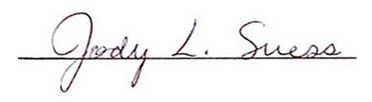 Jody L. Suess